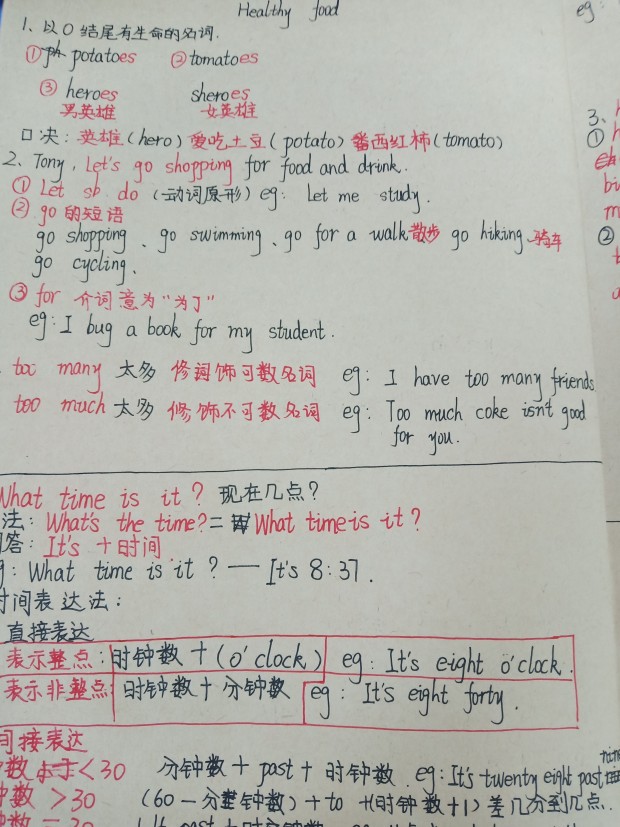 Healthy food
eg:
1、以O结尾有生命的名词.
① potatoes ② tomatoes
③ heroes sheroes
男英雄 女英雄
口决: 英雄(hero)爱吃土豆(potato)番西红柿(tomato)
2、Tony, Let's go shopping for food and drink.
① Let sb do (动词原形) eg: Let me study.
② go的短语
go shopping、go swimming、go for a walk散步 go hiking、骑车
go cycling、
③ for 介词意为"为了"
eg: I bug a book for my student.
too many 太多 修饰可数名词 eg: I have too many friends
too much 太多 修饰不可数名词 eg: Too much coke isn't good
for you.
3、
①
②
What time is it? 现在几点?
法: What's the time? = What time is it?
答: It's +时间
: What time is it? — It's 8:37.
时间表达法:
直接表达
表示整点: 时钟数 + (o'clock) eg: It's eight o'clock.
表示非整点: 时钟数 + 分钟数 eg: It's eight forty.
间接表达
数 < 30 分钟数 + past + 时钟数. eg: It's twenty eight past
钟数 > 30 (60 - 分钟数) + to +(时钟数+1) 差几分到几点.
钟数 = 30